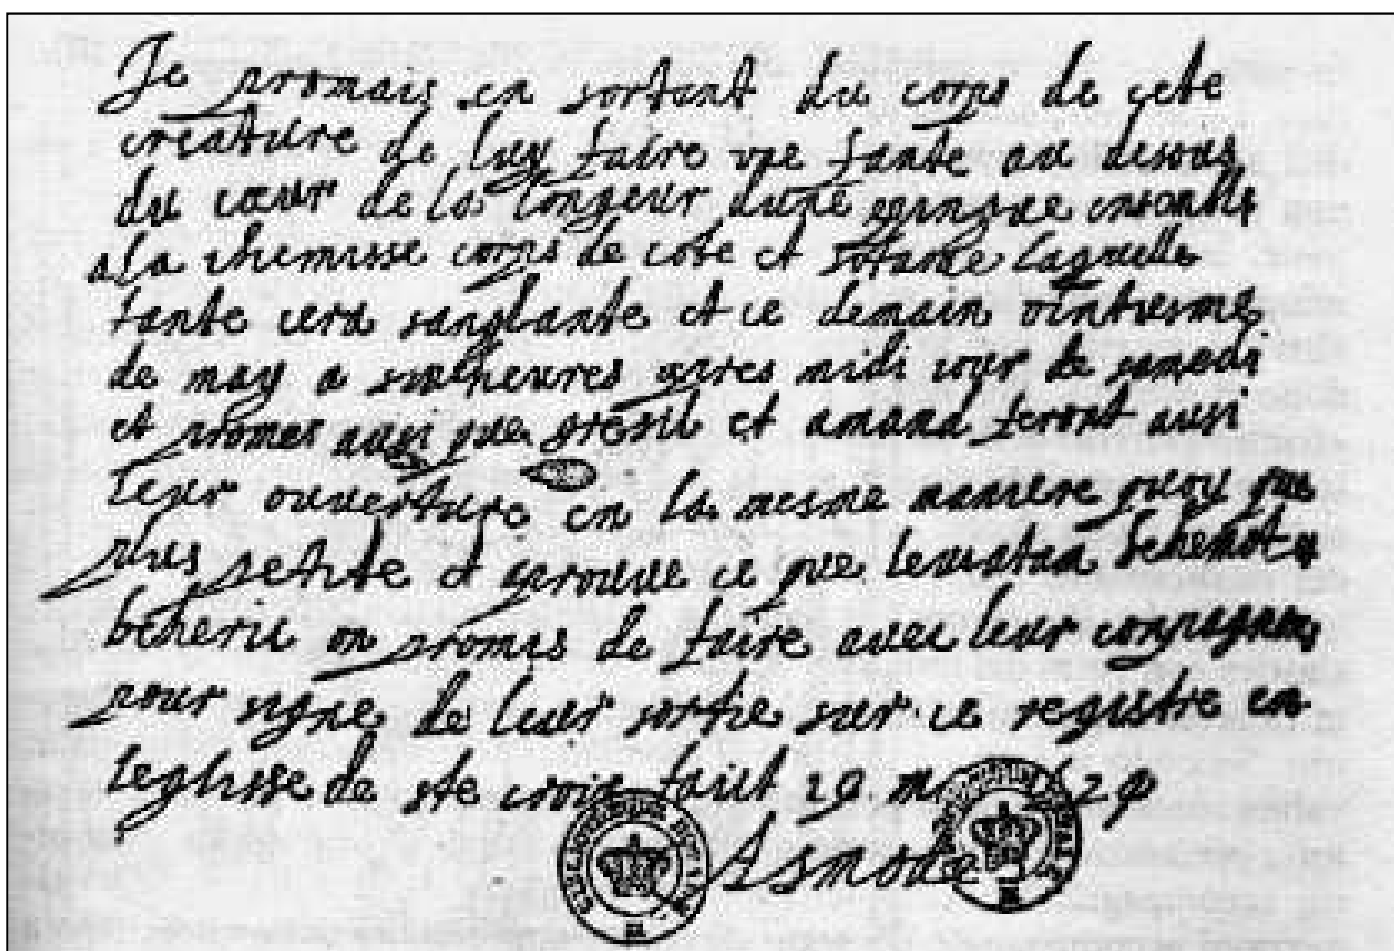 Je promais en sortant du corps de cete
creature de luy faire une fante au desous
du cœur de la longeur dune epingue ensanble
a la chemisse corps de cote et sotane laquelle
fante cera sanglante et ce demain vintiesme
de may a heures apres midi iour de samedi
et promes ausi que gresil et amand feront ausi
leur ouverture en la mesme maniere quoy que
plus petite et aprouve ce que leviatan behemot
beherie on promes de faire avec leur conpagnon
pour signe de leur sortie sur ce registre en
leglisse de ste croix faict 19 629
Asmodee